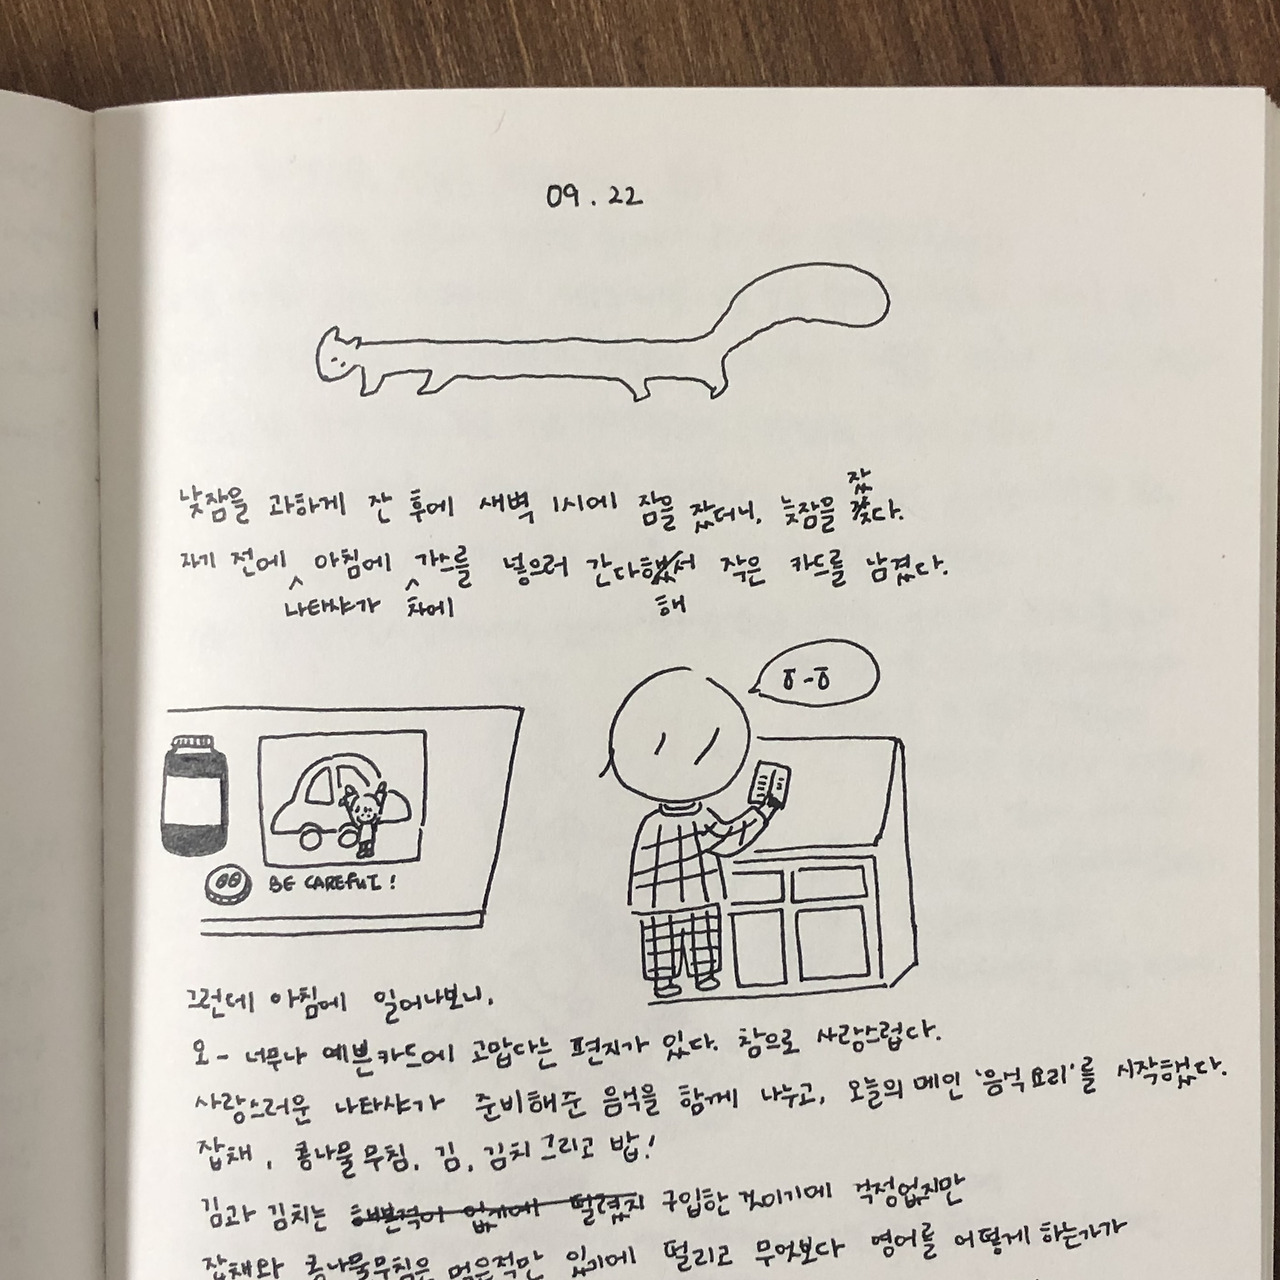 09.22
낮잠을 과하게 잔 후에 새벽 1시에 잠을 잤더니, 늦잠을 잤다.
자기 전에 나타샤가 아침에 차에 가스를 넣으러 간다해서 작은 카드를 남겼다.
ㅎ-ㅎ
BE CAREFUL!
그런데 아침에 일어나보니,
오- 너무나 예쁜카드에 고맙다는 편지가 있다. 참으로 사랑스럽다.
사랑스러운 나타샤가 준비해준 음식을 함께 나누고, 오늘의 메인 '음식 요리'를 시작했다.
잡채, 콩나물무침, 김, 김치 그리고 밥!
김과 김치는 해본적이 없기에 떨렸지 구입한 것이기에 걱정없지만
잡채와 콩나물무침은 먹은적만 있기에 떨리고 무엇보다 영어를 어떻게 하는가가